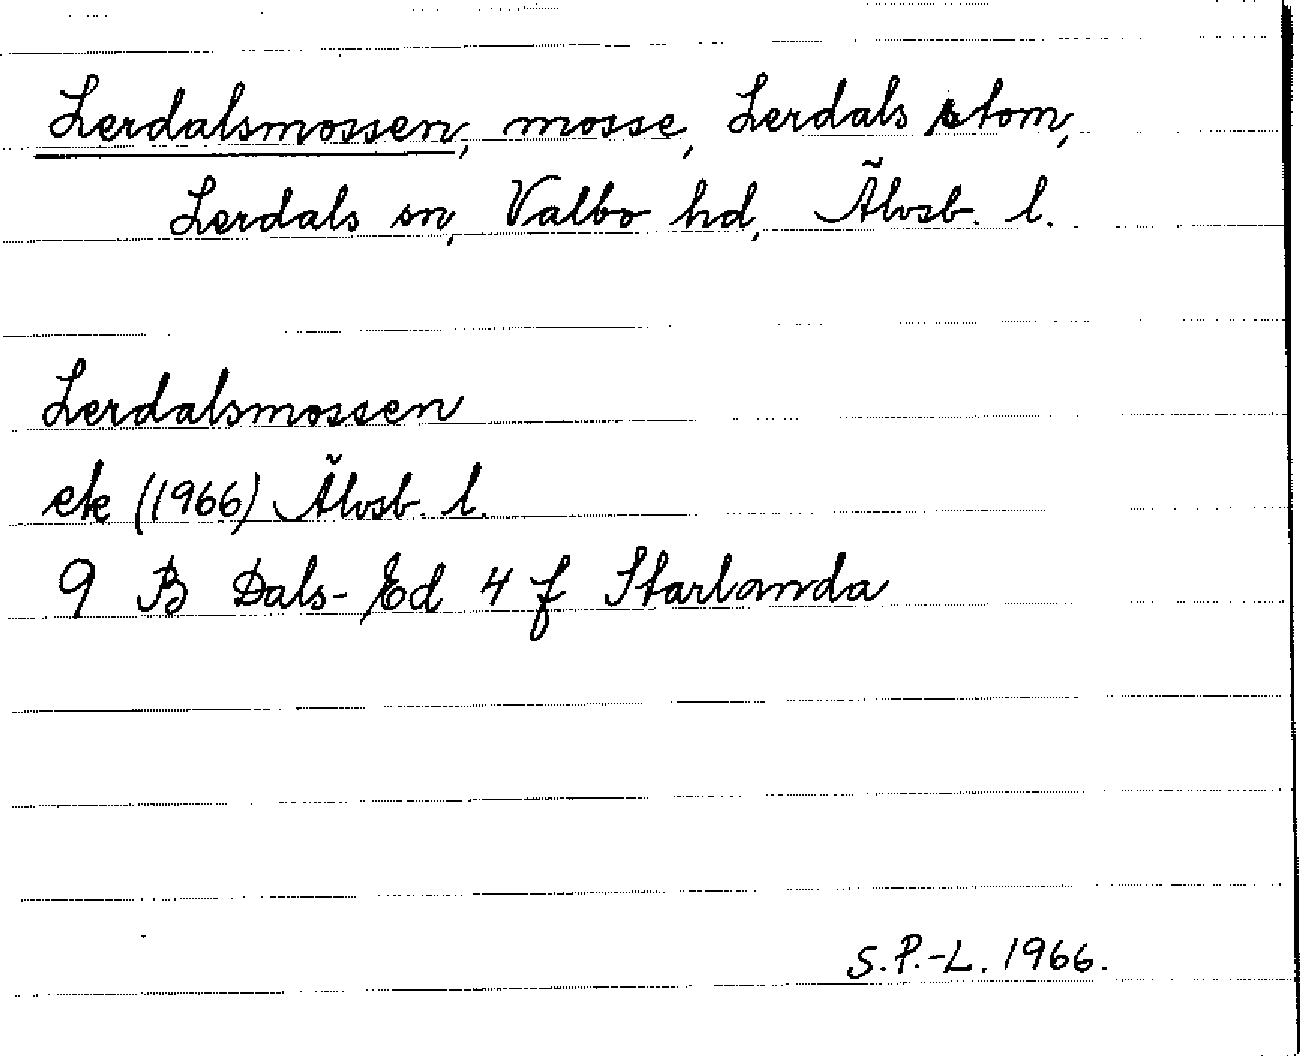 Lerdalsmossen, mosse, Lerdals stom,
Lerdals sn, Valbo hd, Älvsb. l.
Lerdalsmossen
ek (1966) Älvsb. l.
9 B Dals-Ed 4 f Starlanda
S.P.-L. 1966.